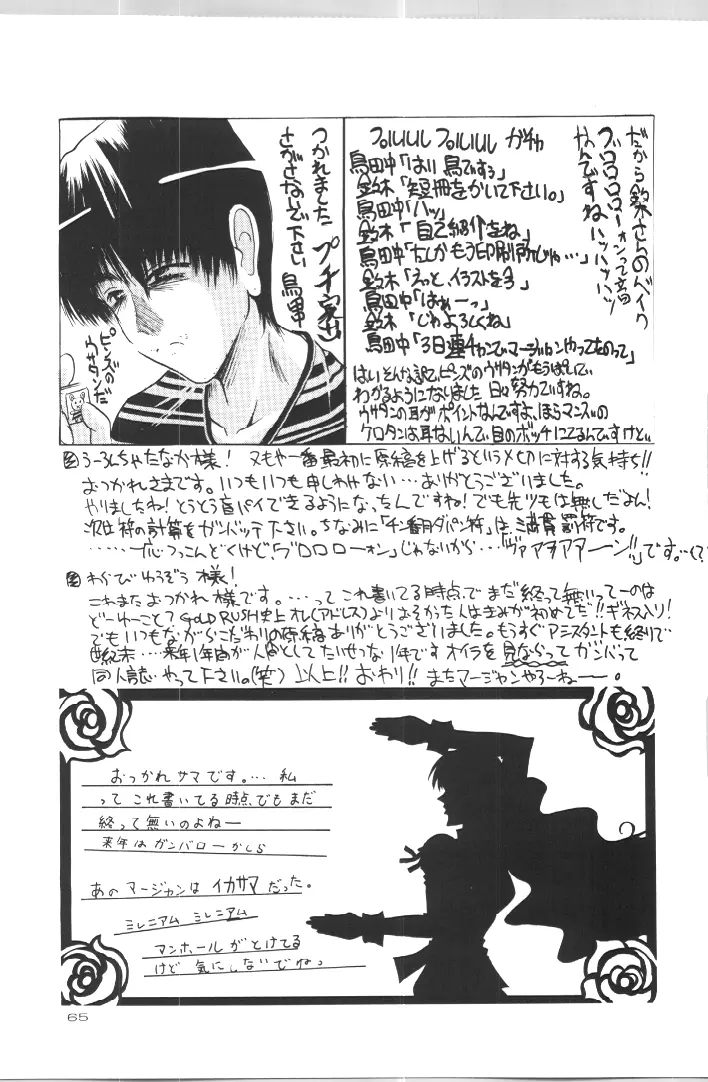 だから鈴木さんのバイク
ブロロロローォンって言
なんですねハッハッハッ
フ゜ルルルル フ゜ルルルル ガチャ
鳥田中「はい鳥ですう」
鈴木「短冊をかいて下さい。」
鳥田中「ハッ」
鈴木「自己紹介をね」
鳥田中「たしかもう印刷所じゃ…」
鈴木「えっと、イラストを今」
鳥田中「はぁーっ」
鈴木「じゃよろしくね」
鳥田中「3日連チャンでマージャンやってたのって」
はいそんな訳でピンズのウサタンがもうぱいで
わかるようになりました 日々努力ですね。
ウサタンの耳がポイントなんですよ、ほらマンズの
ケロタンは耳ないんで目のポッチにてるんですけど、
つかれました プチ家出
さがさないで下さい 鳥田中
ピンズの
ウサタンだ
うーろんちゃたなか様! 又もや一番最初に原稿を上げるという〆切に対する気持ち!!
おつかれさまです。いつもいつも申しわけない…ありがとうございました。
やりましたね!とうとう盲パイできるようになったんですね!でも先ツモは無しだよん!
次は符の計算をガンバッテ下さい。ちなみに「チン番月ダパン符」は満貫罰符です。
……プルつっこんどくけど、「ブロロローォン」じゃないから…「ヴァアヲアアーン!!」です。
わかびゆうぞう様!
これまたおつかれ様です。…って これ書いてる時点で まだ終って無いってーのは
どーゆーこと? GOLD RUSH史上 オレ(アドレス)よりおそかった人はきみが初めてだ!!ギネス入り!
でもいつもながらこだわりの原稿ありがとうございました。もうすぐアシスタントも終りで
世紀末…来年1年間が人間としてたいせつな1年です オイラを見ならって ガンバって
同人誌やって下さい。(笑) 以上!! おわり!! またマージャンやろーねー。
おつかれサマです。… 私
って これ書いてる時点でもまだ
終って無いのよねー
来年はガンバローかしら
あの マージャンは イカサマ だった。
ミレニアム ミレニアム
マンホール がとけてる
けど 気にしないでねっ
65